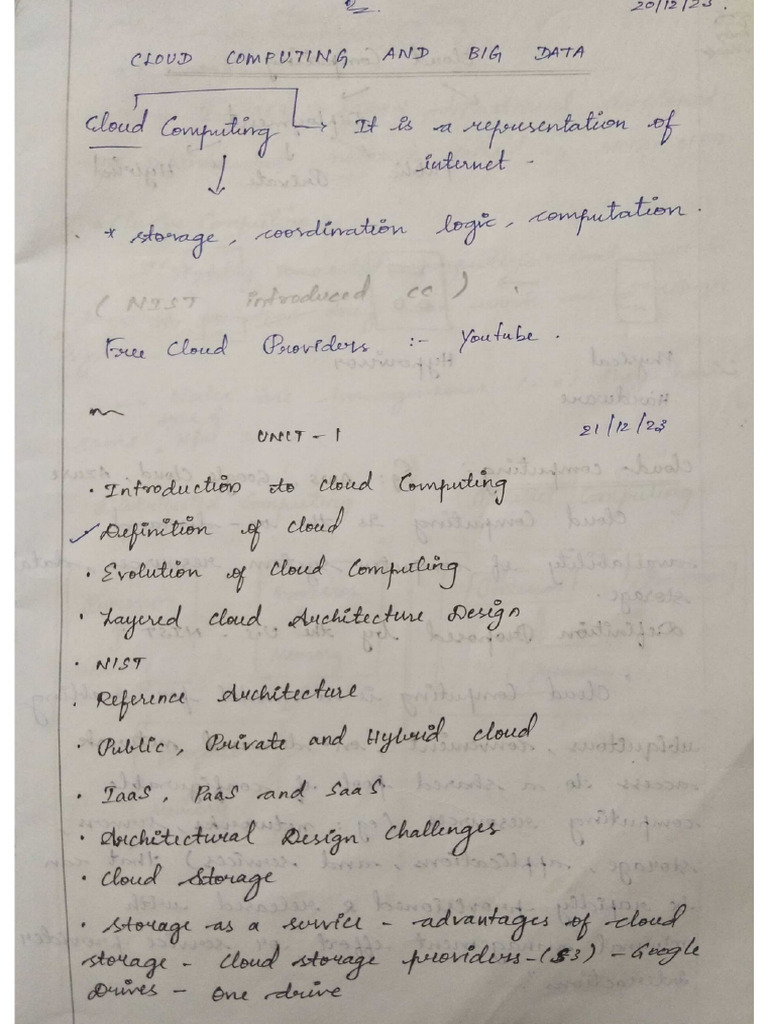 20/12/23.
CLOUD COMPUTING AND BIG DATA
Cloud Computing → It is a representation of
internet -
* storage, coordination logic, computation.
( NIST introduced CC )
Free Cloud Providers :- Youtube.
UNIT - 1 21/12/23
• Introduction to Cloud Computing
✓ Definition of Cloud
• Evolution of Cloud Computing
• Layered Cloud Architecture Design
• NIST
• Reference Architecture
• Public, Private and Hybrid Cloud
• IaaS, PaaS and SaaS
• Architectural Design Challenges
• Cloud Storage
• Storage as a service - advantages of cloud
storage - Cloud storage providers - (S3) - Google
Drives - One drive